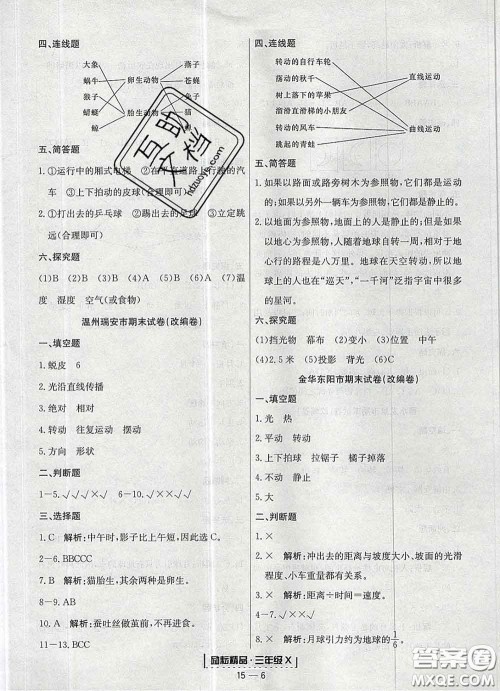 四、连线题
大象 燕子
蜗牛 卵生动物 苍蝇
猴子 兔子
蜻蜓 胎生动物 猫
鲸
五、简答题
1. ①运行中的厢式电梯 ②在平直道路上行驶的汽
车 ③上下拍动的皮球(合理即可)
2. ①打出去的乒乓球 ②踢出去的 ③立定跳
远(合理即可)
六、探究题
(1)B (2)B (3)B (4)A (5)B (6)A (7)温
度 湿度 空气(或食物)
温州瑞安市期末试卷(改编卷)
一、填空题
1. 蜕皮 6
2. 光沿直线传播
3. 绝对 相对
4. 转动 往复运动 摆动
5. 方向 形状
二、判断题
1—5. √√√×√ 6—10. √√×√×
三、选择题
1. C 解析:中午时,影子比上午短,因此选 C。
2—6. BBCCC
7. B 解析:猫胎生,其余两种是卵生。
8—9. AB
10. A 解析:蚕吐丝做茧前,不再进食。
11—13. BCC
四、连线题
转动的自行车轮
荡动的秋千 直线运动
树上落下的苹果
溜滑直滑梯的小朋友
转动的风车 曲线运动
跳起的青蛙
五、简答题
1. 如果以路面或路旁树木为参照物,它们都是运动
的;如果以另外一辆车为参照物,它们都是静止的。
2. 以地面为参照物,地面上的人是静止的,但如果以
地心为参照物,人随着地球自转一周,相对于地心
行的路程是八万里。地球在天空转动,所以地
球上的人也在“巡天”,“一千河”泛指宇宙中很多
的星河。
六、探究题
(1)挡光物 幕布 (2)变小 (3)位置 中午
(4)2.5 米 (5)投影 背光 (6)C
金华东阳市期末试卷(改编卷)
一、填空题
1. 光 热
2. 平动 转动
3. 上下拍球 拉锯子 橘子掉落
4. 不动 静止
5. 大
二、判断题
1. ×
2. × 解析:冲出去的距离与坡度大小、坡面的光滑
程度、小车重量都有关系。
3. × 解析:尺蠖运动时身体一屈一伸。
4—7. √√×√
8. × 解析:月球引力约为地球的1/6。
励耘精品·三年级 X
15—6
互助文档
hdzuoye.com
答案圈
MXQE.COM